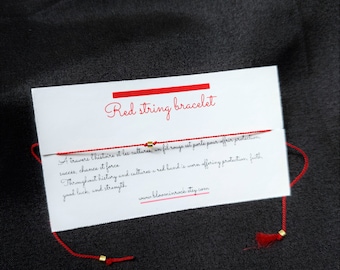 Red string bracelet
A travers l'histoire et les cultures, un fil rouge est porté pour offrir protection,
succes, chance et force.
Throughout history and cultures a red band is worn offering protection, faith,
good luck, and strength.
www.bloominrock.etsy.com